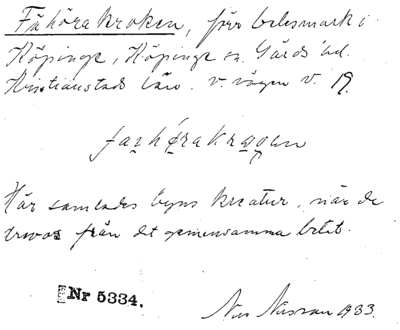 Fähörakroken, förr betesmark i
Köpinge, Köpinge sn. Gärds hd.
Kristianstads län. v. vägen v. 19.
Här samlades byns kreatur, när de
drevos från det gemensamma betet.
Nr 5334.
Nils 1933.